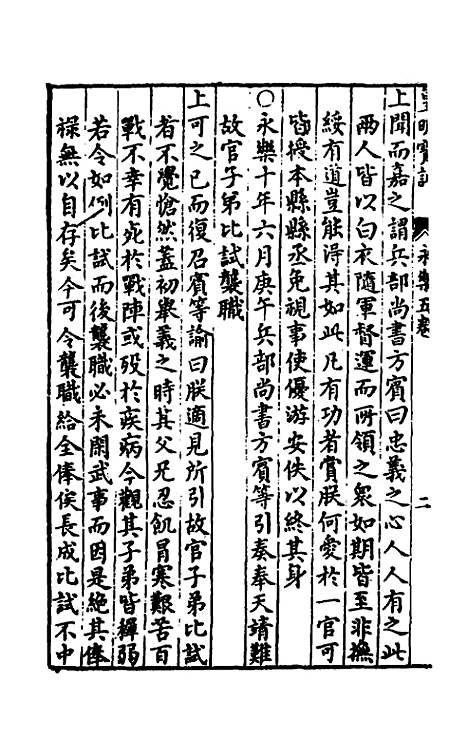 皇明寶訓 永樂五卷 二
上聞而嘉之謂兵部尚書方賓曰忠義之心人人有之此
兩人皆以白衣隨軍督運而所領之衆如期皆至非撫
綏有道豈能得其如此凡有功者賞朕何愛於一官可
皆授本縣縣丞免視事使優游安佚以終其身
○永樂十年六月庚午兵部尚書方賓等引奏奉天靖難
故官子弟比試襲職
上可之已而復召賓等諭曰朕適見所引故官子弟比試
者不覺愴然蓋初舉義之時其父兄忍飢冒寒艱苦百
戰不幸有死於戰陣或歿於疾病今觀其子弟皆穉弱
若令如例比試而後襲職必未閑武事而因是絶其俸
祿無以自存矣今可令襲職給全俸俟長成比試不中